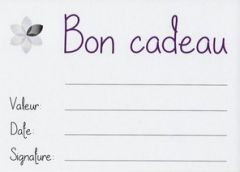 Bon cadeau
Valeur:
Date:
Signature: